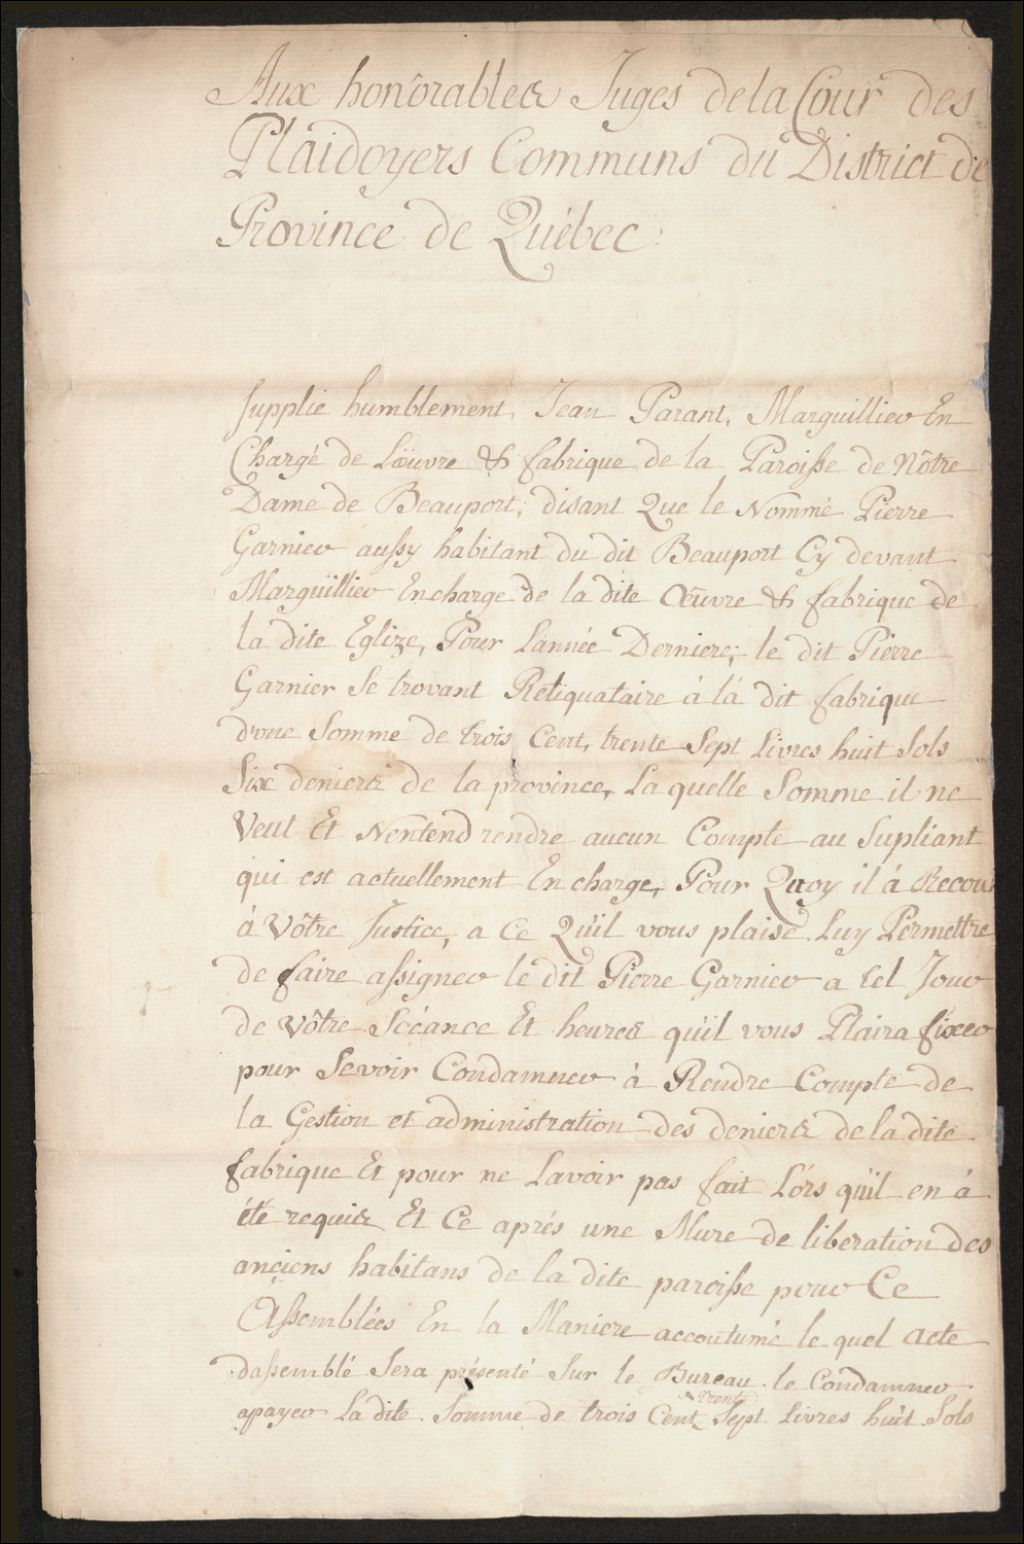 Aux honôrables Juges de la Cour des
Plaidoyers Communs du District de
Province de Québec.
supplie humblement, Jean Parant, Marguillier En
Chargé de Lœuvre & fabrique de la Paroisse de Nôtre
Dame de Beauport; disant Que le Nommé Pierre
Garnier aussy habitant du dit Beauport Cy devant
Marguillier En charge de la dite Œuvre & fabrique de
la dite Eglize, Pour Lannée Derniere; le dit Pierre
Garnier Se trovant Reliquataire á lá dit fabrique
d'une Somme de trois Cent, trente Sept Livres huit Sols
Six deniers de la province, La quelle Somme il ne
Veut Et Nentend rendre aucun Compte au Supliant
qui est actuellement En charge, Pour Quoy il á Recour
á Vôtre Justice, a Ce Qu'il vous plaise Luy Permettre
de faire assigner le dit Pierre Garnier a tel Jour
de Vôtre Scéance Et heures qu'il vous Plaira fixer
pour Sevoir Condamner à Rendre Compte de
la Gestion et administration des deniers de la dite
fabrique Et pour ne Lavoir pas fait Lórs qu'il en á
été requis Et Ce aprés une Mure de liberation des
anciens habitans de la dite paroisse pour Ce
Assemblées En la Maniere accoutumé le quel acte
dassemblé Sera présenté Sur le Bureau le Condamner
apayer La dite Somme de trois Cent trente Sept Livres huit Sols